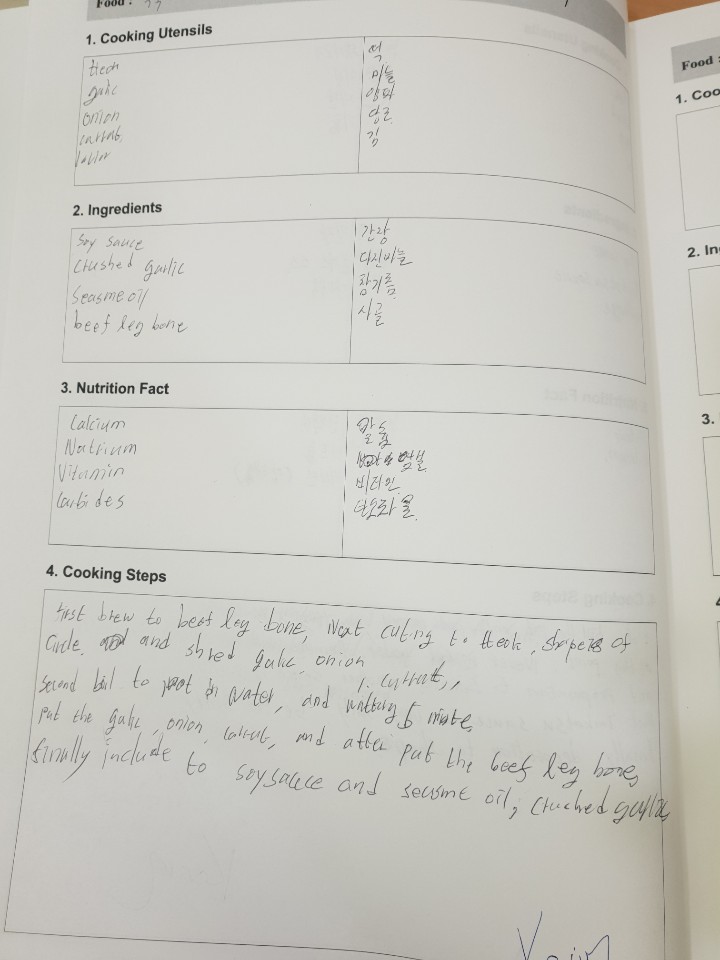 Food :
1. Cooking Utensils
tteok 떡
galic 마늘
onion 양파
carrot 당근
김
2. Ingredients
Soy sauce 간장
Crushed garlic 다진마늘
Seasme oil 참기름
beef leg bone 사골
3. Nutrition Fact
Calcium 칼슘
Nactrium
Vitamin 비타민
Carbides 탄소화물
4. Cooking Steps
First brew to beef leg bone, Next cuting to tteok, shapes of
Circle, and shred galic, onion, currott,,
Second boil to pot in water, and waiting 5 minte,
Put the galic, onion, carrot, and after put the beef leg bone,
finally include to soysauce and seasme oil, Crushed garlic
Food :
1. Coo
2. In
3.
4